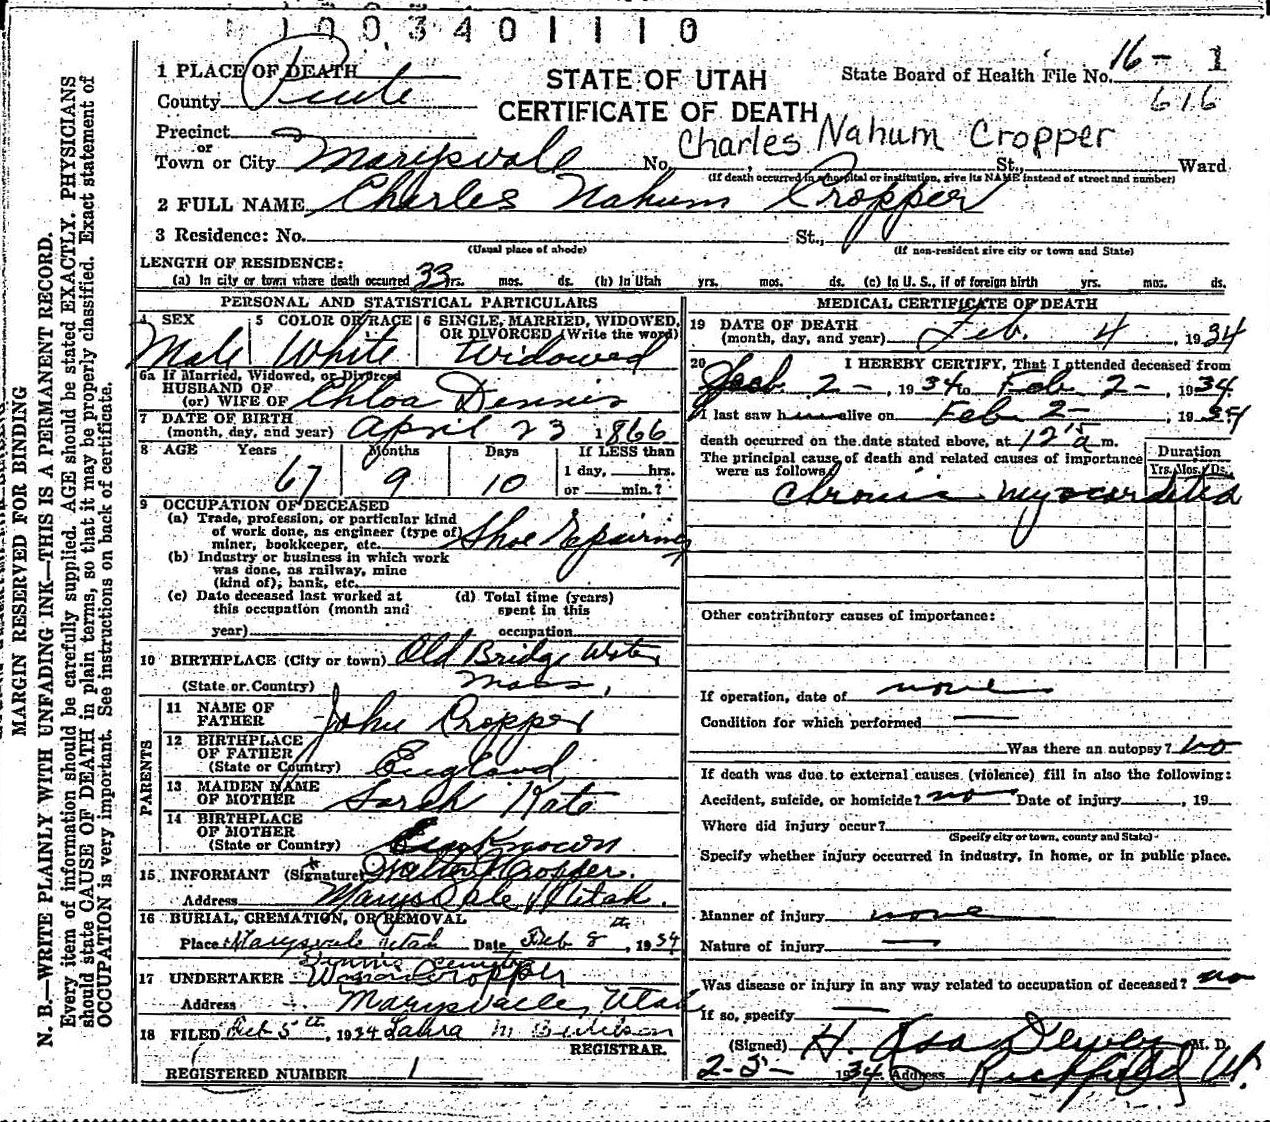 1003401110
1 PLACE OF DEATH
County Piute
STATE OF UTAH
CERTIFICATE OF DEATH
State Board of Health File No. 16- 1
616
Precinct
or
Town or City Marysvale No. Charles Nahum Cropper St., Ward
(If death occurred in a hospital or institution, give its NAME instead of street and number)
2 FULL NAME Charles Nahum Cropper
3 Residence: No. St.,
(Usual place of abode) (If non-resident give city or town and State)
LENGTH OF RESIDENCE:
(a) In city or town where death occurred 33 yrs. mos. ds. (b) In Utah yrs. mos. ds. (c) In U. S., if of foreign birth yrs. mos. ds.
PERSONAL AND STATISTICAL PARTICULARS
4 SEX 5 COLOR OR RACE 6 SINGLE, MARRIED, WIDOWED,
OR DIVORCED (Write the word)
Male White Widowed
6a If Married, Widowed, or Divorced
HUSBAND OF
(or) WIFE OF Chloa Dennis
7 DATE OF BIRTH
(month, day, and year) April 23 1866
8 AGE Years Months Days If LESS than
1 day, hrs.
67 9 10 or min.?
9 OCCUPATION OF DECEASED
(a) Trade, profession, or particular kind
of work done, as engineer (type of)
miner, bookkeeper, etc. Shoe Repairing
(b) Industry or business in which work
was done, as railway, mine
(kind of), bank, etc.
(c) Date deceased last worked at (d) Total time (years)
this occupation (month and spent in this
year) occupation
10 BIRTHPLACE (City or town) Old Bridge
(State or Country) Mass,
PARENTS
11 NAME OF
FATHER John Cropper
12 BIRTHPLACE
OF FATHER
(State or Country) England
13 MAIDEN NAME
OF MOTHER Sarah Kate
14 BIRTHPLACE
OF MOTHER
(State or Country) Unknown
15 INFORMANT (Signature) Walter Cropper.
Address Marysvale Utah.
16 BURIAL, CREMATION, OR REMOVAL
Place Marysvale Utah Date Feb 8th, 1934
17 UNDERTAKER Cropper
Address Marysvale, Utah
18 FILED Feb 5th, 1934 Laura M
REGISTRAR.
REGISTERED NUMBER 1
MEDICAL CERTIFICATE OF DEATH
19 DATE OF DEATH
(month, day, and year) Feb. 4, 1934
20 I HEREBY CERTIFY, That I attended deceased from
Feb 2-, 1934 to Feb 2-, 1934
I last saw him alive on Feb 2-, 1934
death occurred on the date stated above, at 12 a m.
The principal cause of death and related causes of importance
were as follows:
Duration
Yrs. Mos. Ds.
Chronic myocarditis
Other contributory causes of importance:
If operation, date of none
Condition for which performed —
Was there an autopsy? no
If death was due to external causes (violence) fill in also the following:
Accident, suicide, or homicide? no Date of injury , 19
Where did injury occur?
(Specify city or town, county and State)
Specify whether injury occurred in industry, in home, or in public place.
Manner of injury none
Nature of injury —
Was disease or injury in any way related to occupation of deceased? no
If so, specify —
(Signed) H. Asa Dewey M. D.
2-5- 1934 Address Richfield Ut.
MARGIN RESERVED FOR BINDING
N. B.—WRITE PLAINLY WITH UNFADING INK—THIS IS A PERMANENT RECORD.
Every item of information should be carefully supplied. AGE should be stated EXACTLY. PHYSICIANS
should state CAUSE OF DEATH in plain terms, so that it may be properly classified. Exact statement of
OCCUPATION is very important. See instructions on back of certificate.